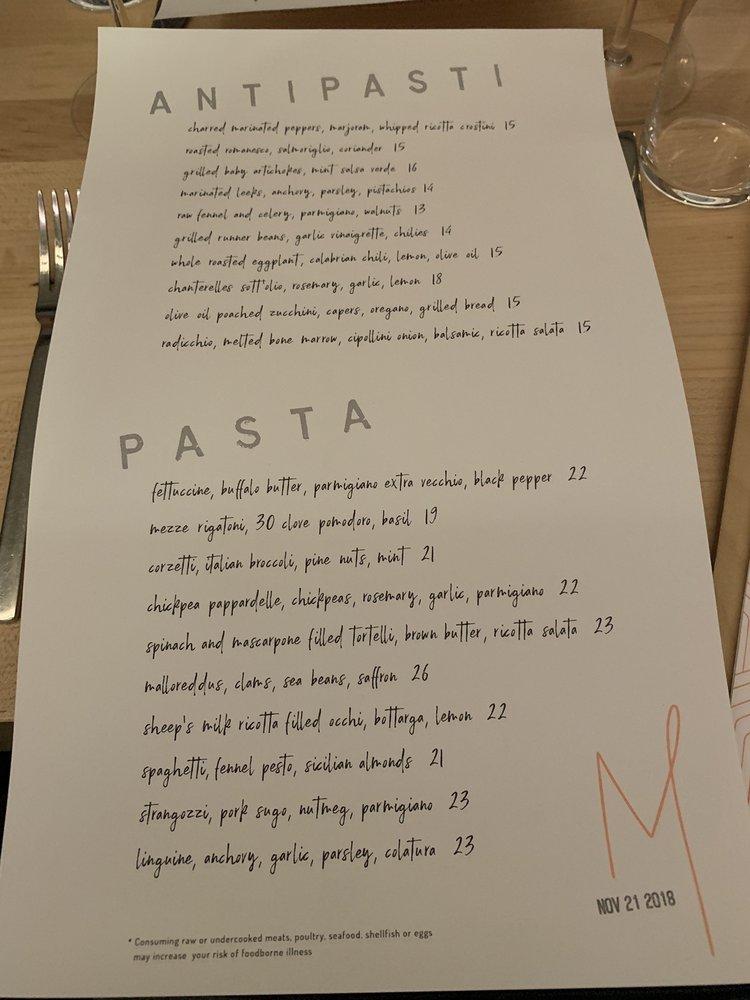 ANTIPASTI
charred marinated peppers, marjoram, whipped ricotta crostini 15
roasted romanesco, salmoriglio, coriander 15
grilled baby artichokes, mint salsa verde 16
marinated leeks, anchovy, parsley, pistachios 14
raw fennel and celery, parmigiano, walnuts 13
grilled runner beans, garlic vinaigrette, chilies 14
whole roasted eggplant, calabrian chili, lemon, olive oil 15
chanterelles sott'olio, rosemary, garlic, lemon 18
olive oil poached zucchini, capers, oregano, grilled bread 15
radicchio, melted bone marrow, cipollini onion, balsamic, ricotta salata 15
PASTA
fettuccine, buffalo butter, parmigiano extra vecchio, black pepper 22
mezze rigatoni, 30 clove pomodoro, basil 19
corzetti, italian broccoli, pine nuts, mint 21
chickpea pappardelle, chickpeas, rosemary, garlic, parmigiano 22
spinach and mascarpone filled tortelli, brown butter, ricotta salata 23
malloreddus, clams, sea beans, saffron 26
sheep's milk ricotta filled occhi, bottarga, lemon 22
spaghetti, fennel pesto, sicilian almonds 21
strangozzi, pork sugo, nutmeg, parmigiano 23
linguine, anchovy, garlic, parsley, colatura 23
M
NOV 21 2018
* Consuming raw or undercooked meats, poultry, seafood, shellfish or eggs
may increase your risk of foodborne illness